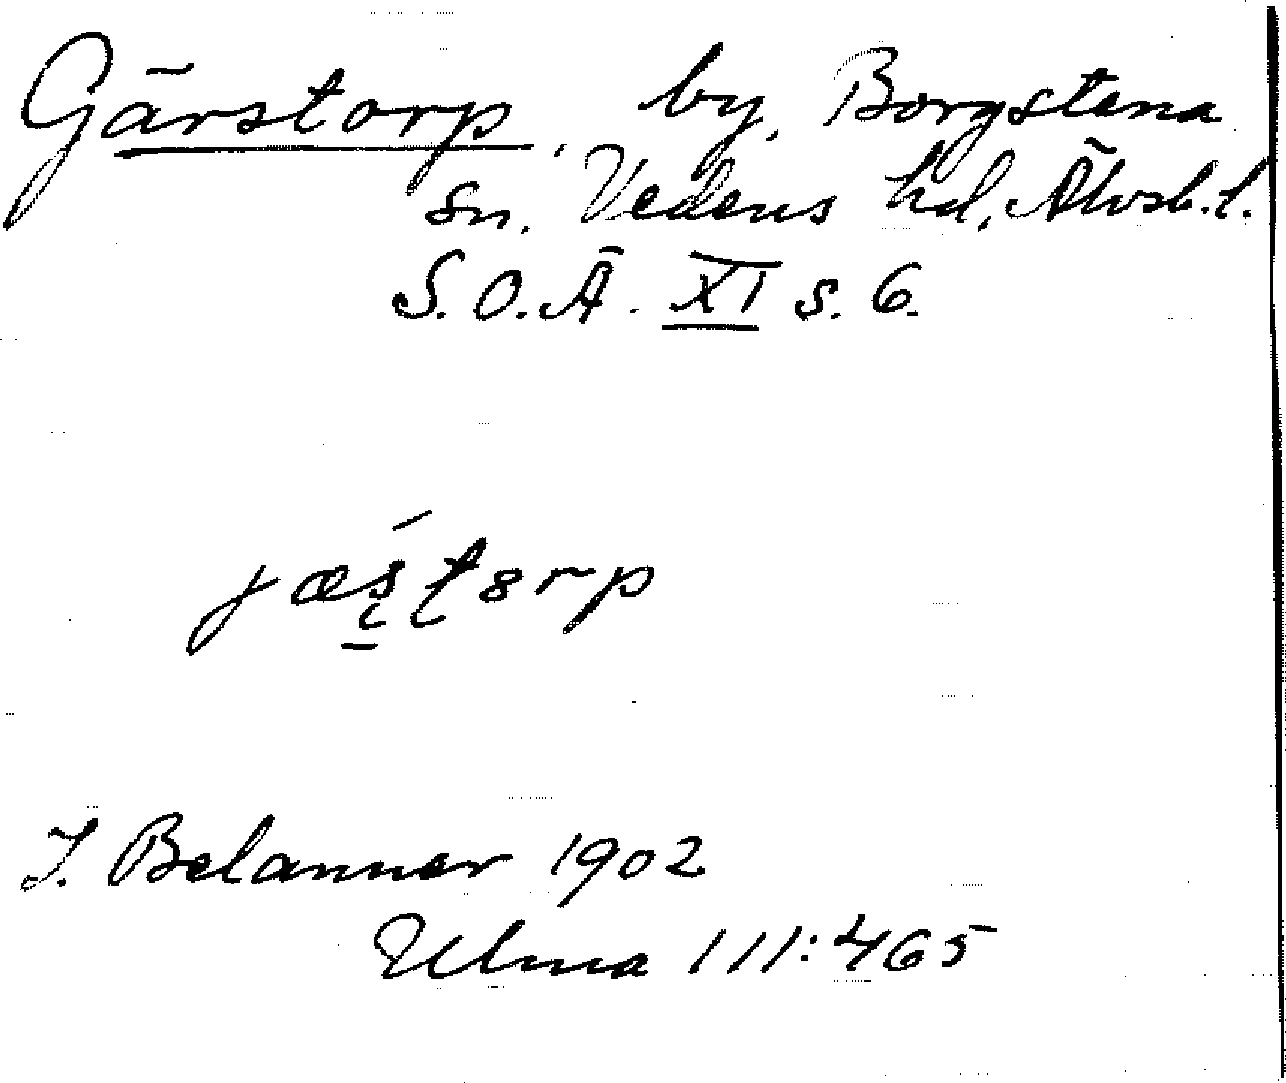 Gärstorp, by, Borgstena
sn. Vedens hd, Älvsb. l.
S.O.Ä. XI s. 6.
J. Belanner 1902
Ulma 111:465